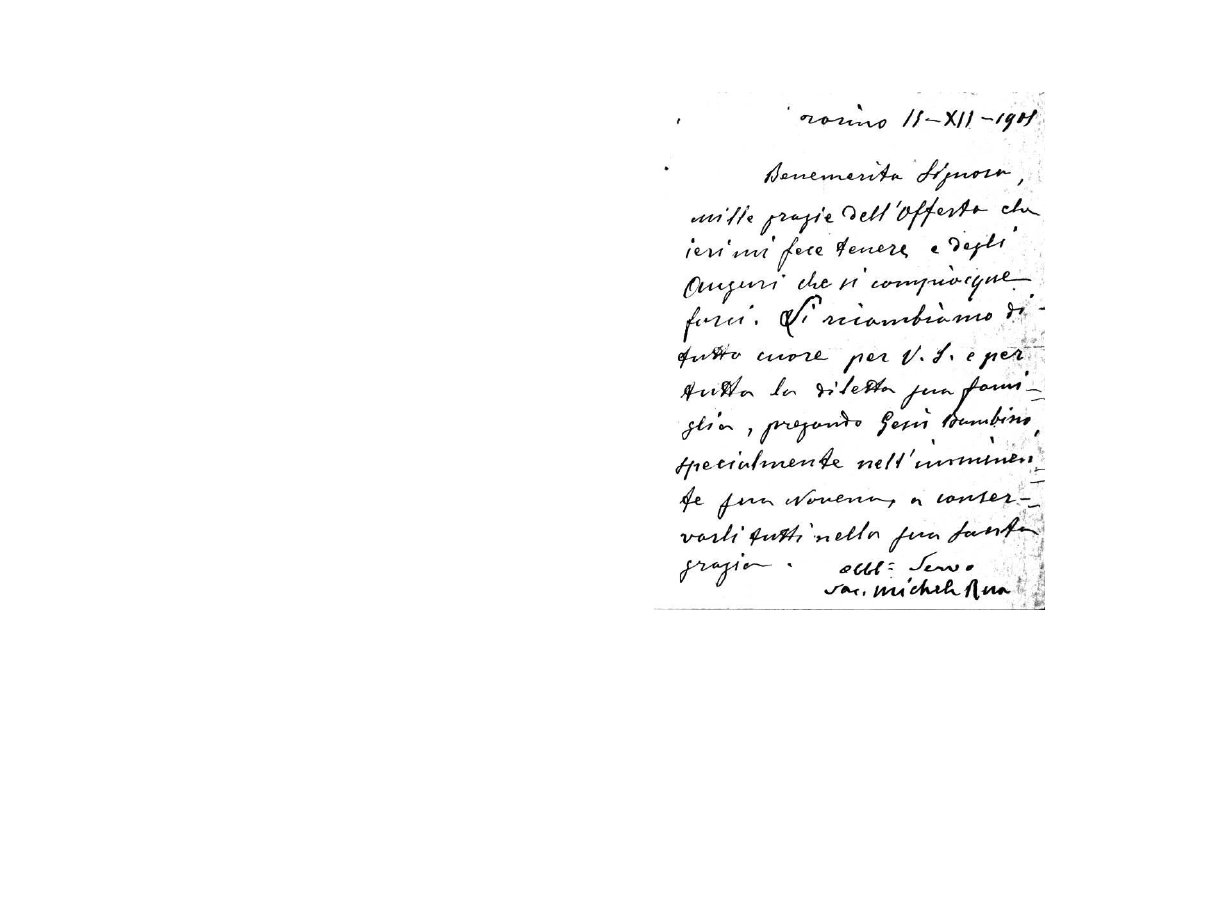 Torino 15-XII-1901
Benemerita Signora,
mille grazie dell'Offerta che
ieri mi fece tenere e degli
Auguri che si compiacque
farci. Li ricambiamo di
tutto cuore per V. S. e per
tutta la diletta sua fami-
glia, pregando Gesù Bambino,
specialmente nell'imminen-
te sua Novena, a conser-
varli tutti nella sua santa
grazia.
obbl: Servo
Sac. Michele Rua